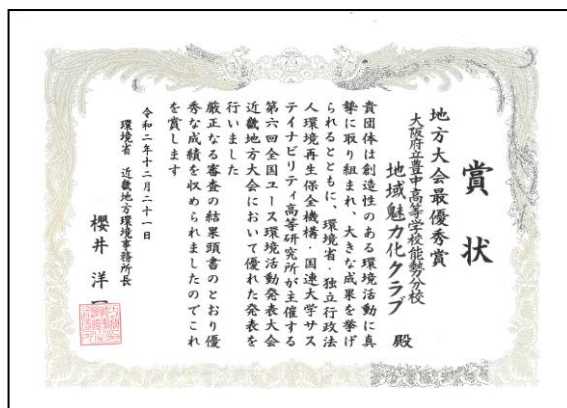 賞状
地方大会最優秀賞
大阪府立豊中高等学校能勢分校
地域魅力化クラブ 殿
貴団体は創造性のある環境活動に真
摯に取り組まれ、大きな成果を挙げ
られるとともに、環境省・独立行政法
人環境再生保全機構・国連大学サス
テイナビリティ高等研究所が主催する
第六回全国ユース環境活動発表大会
近畿地方大会において優れた発表を
行いました
厳正なる審査の結果頭書のとおり優
秀な成績を収められましたのでこれ
を賞します
令和二年十二月二十一日
環境省 近畿地方環境事務所長
櫻井 洋